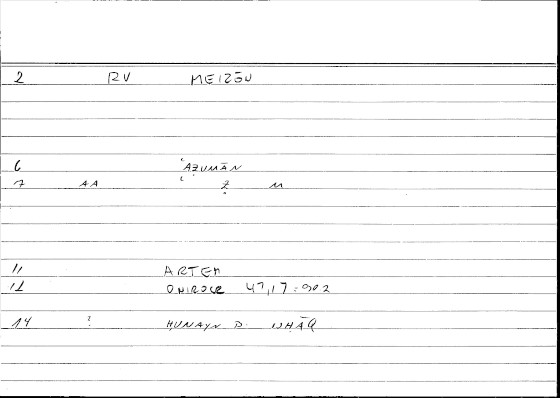 2 RV MEIZŌN
6 ʿAẒUMĀN
7 AA ʿ Ẓ M
11 ARTEM
12 ONIROCR 47,17:902
14 ? ḤUNAYN B. ISḤĀQ